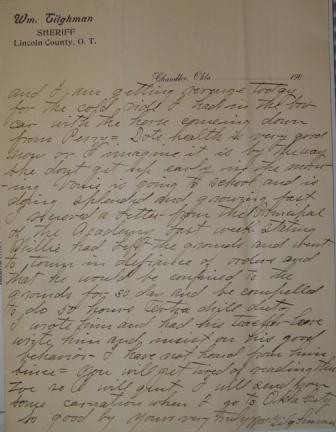 Wm. Tilghman
SHERIFF
Lincoln County, O. T.
Chandler, Okla 190
and I am getting revenge today
for the cold ride I had in the Box
car with the horse comeing down
from Perry= Dots health is very good
now or I imagine it is by the way
she dont get up early in the morn
-ing is going to school and is
doing splendid and growing fast
I received a letter from the Principal
of the Academy last week stating
Willie had left the grounds and went
to town in defiance of orders and
that he would be confined to the
grounds for 30 day and be compelled
to do 50 hours extra drill duty
I wrote him and had his
write him and insist on his good
behavior- I have not heard from him
since= You will get tired of reading this
so I will quit I will send you
some carnation when I go to Okla City
so good by Yours very truly Wm Tilghman